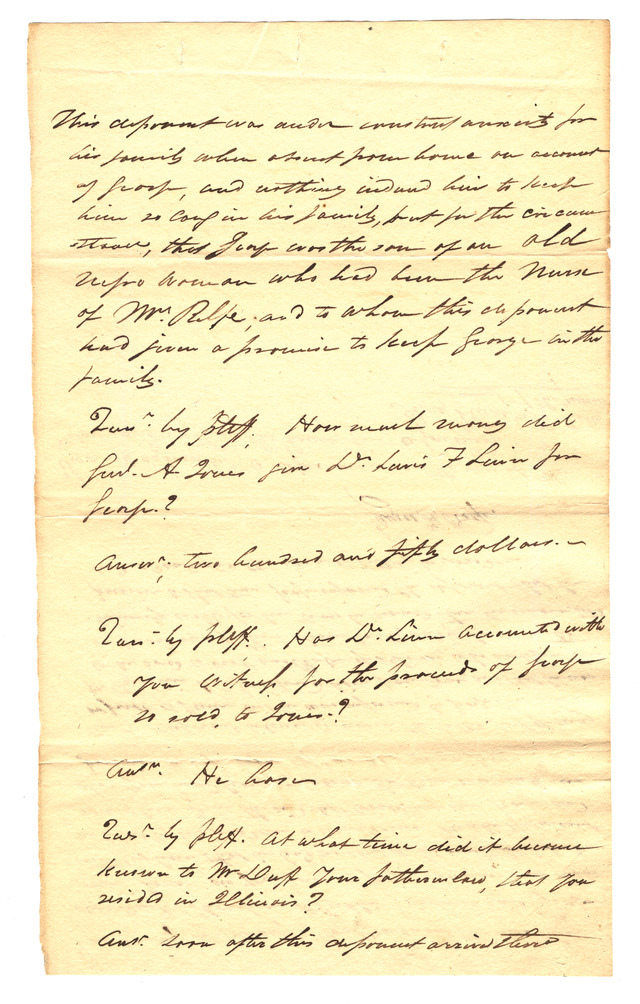 This deponent was under constant anxiety for
his family when absent from home on account
of George, and nothing induced him to keep
him so long in his family, but for the circum
stance, that George was the son of an old
negro woman who had been the Nurse
of Mrs Relfe, and to whom this deponent
had given a promise to keep George in the
family.
Quesn. by pltff. How much money did
Genl. A Jones give Dr. Lewis F Linn for
George.?
Answr. two hundred and fifty dollars.-
Quesn. by pltff. Has Dr. Linn accounted with
you witness for the proceeds of George
so sold to Jones.?
Answr. He has
Quesn. by pltff. At what time did it become
known to Mr Duff your father in law, that you
resided in Illinois?
Answr. soon after this deponent arrived there